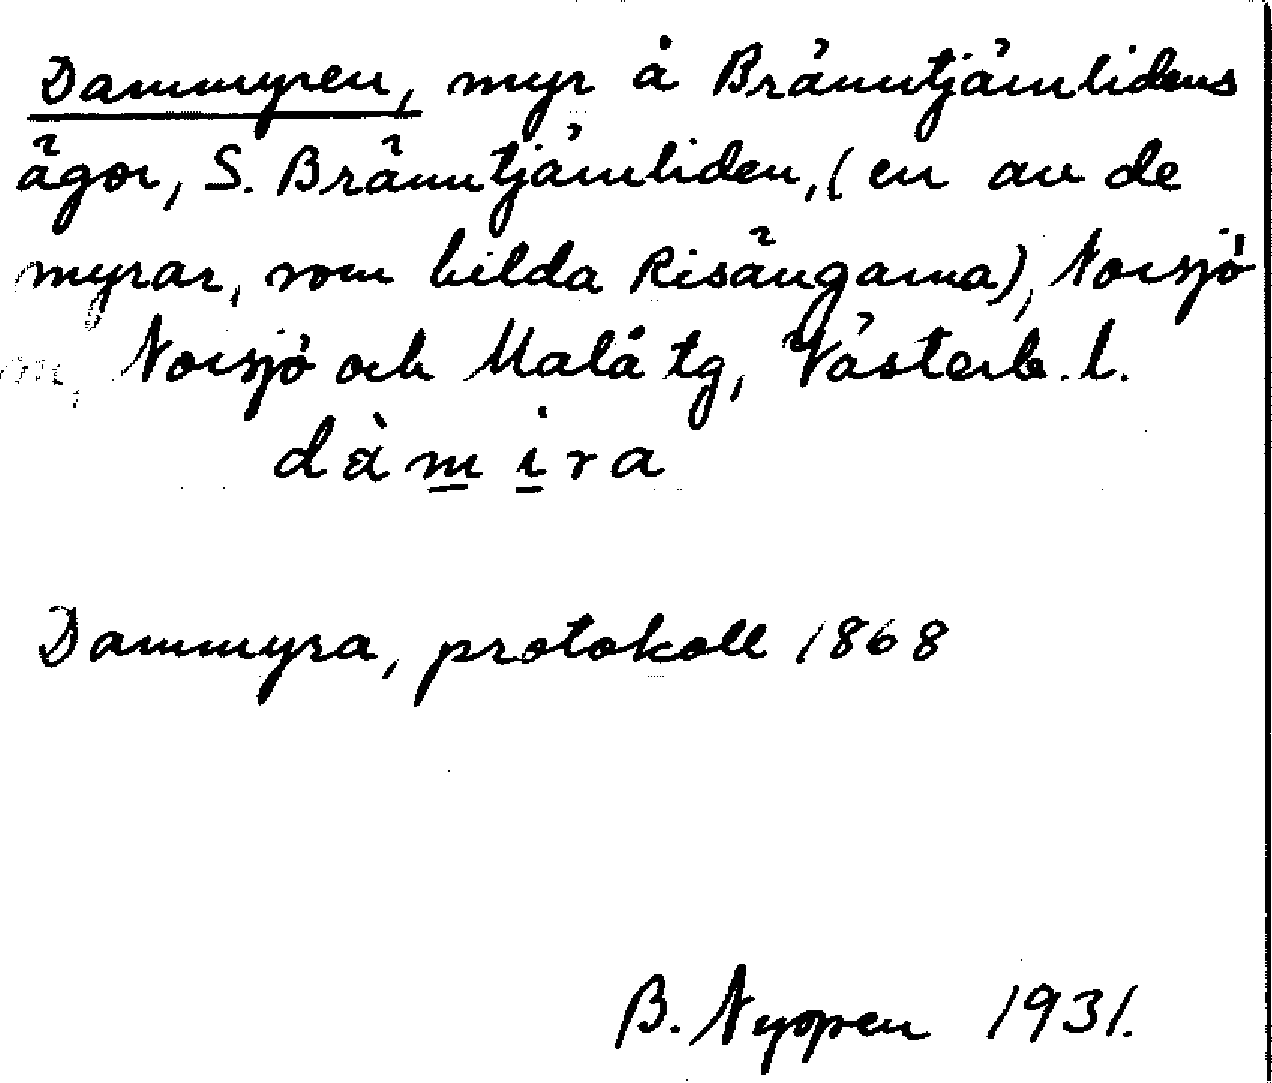 Dammyren, myr å Bränntjärnlidens
ägor, S. Bränntjärnliden, (en av de
myrar, som bilda Risängarna), Norsjö
sn, Norsjö och Malå tg, Västerb. l.
dàmira
Dammyra, protokoll 1868
B. Nyopen 1931.